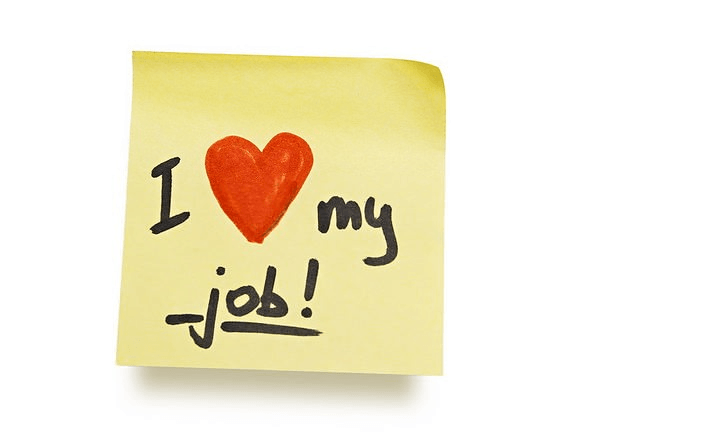 I ❤ my
job!